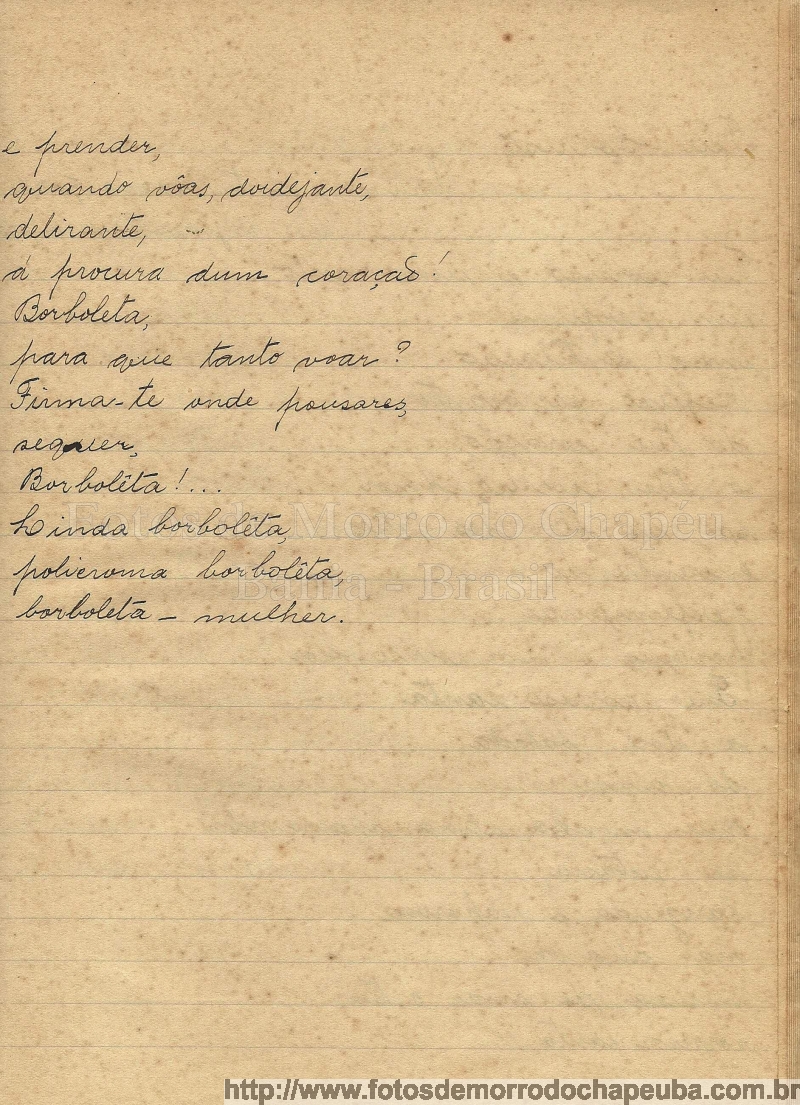 e prender,
quando vôas, doidejante,
delirante,
á procura dum coração!
Borboleta,
para que tanto voar?
Firma-te onde pousares,
sequer,
Borbolêta!...
Linda borbolêta,
policroma borbolêta,
borboleta - mulher.
Fotos de Morro do Chapéu
Bahia - Brasil
http://www.fotosdemorrodochapeuba.com.br